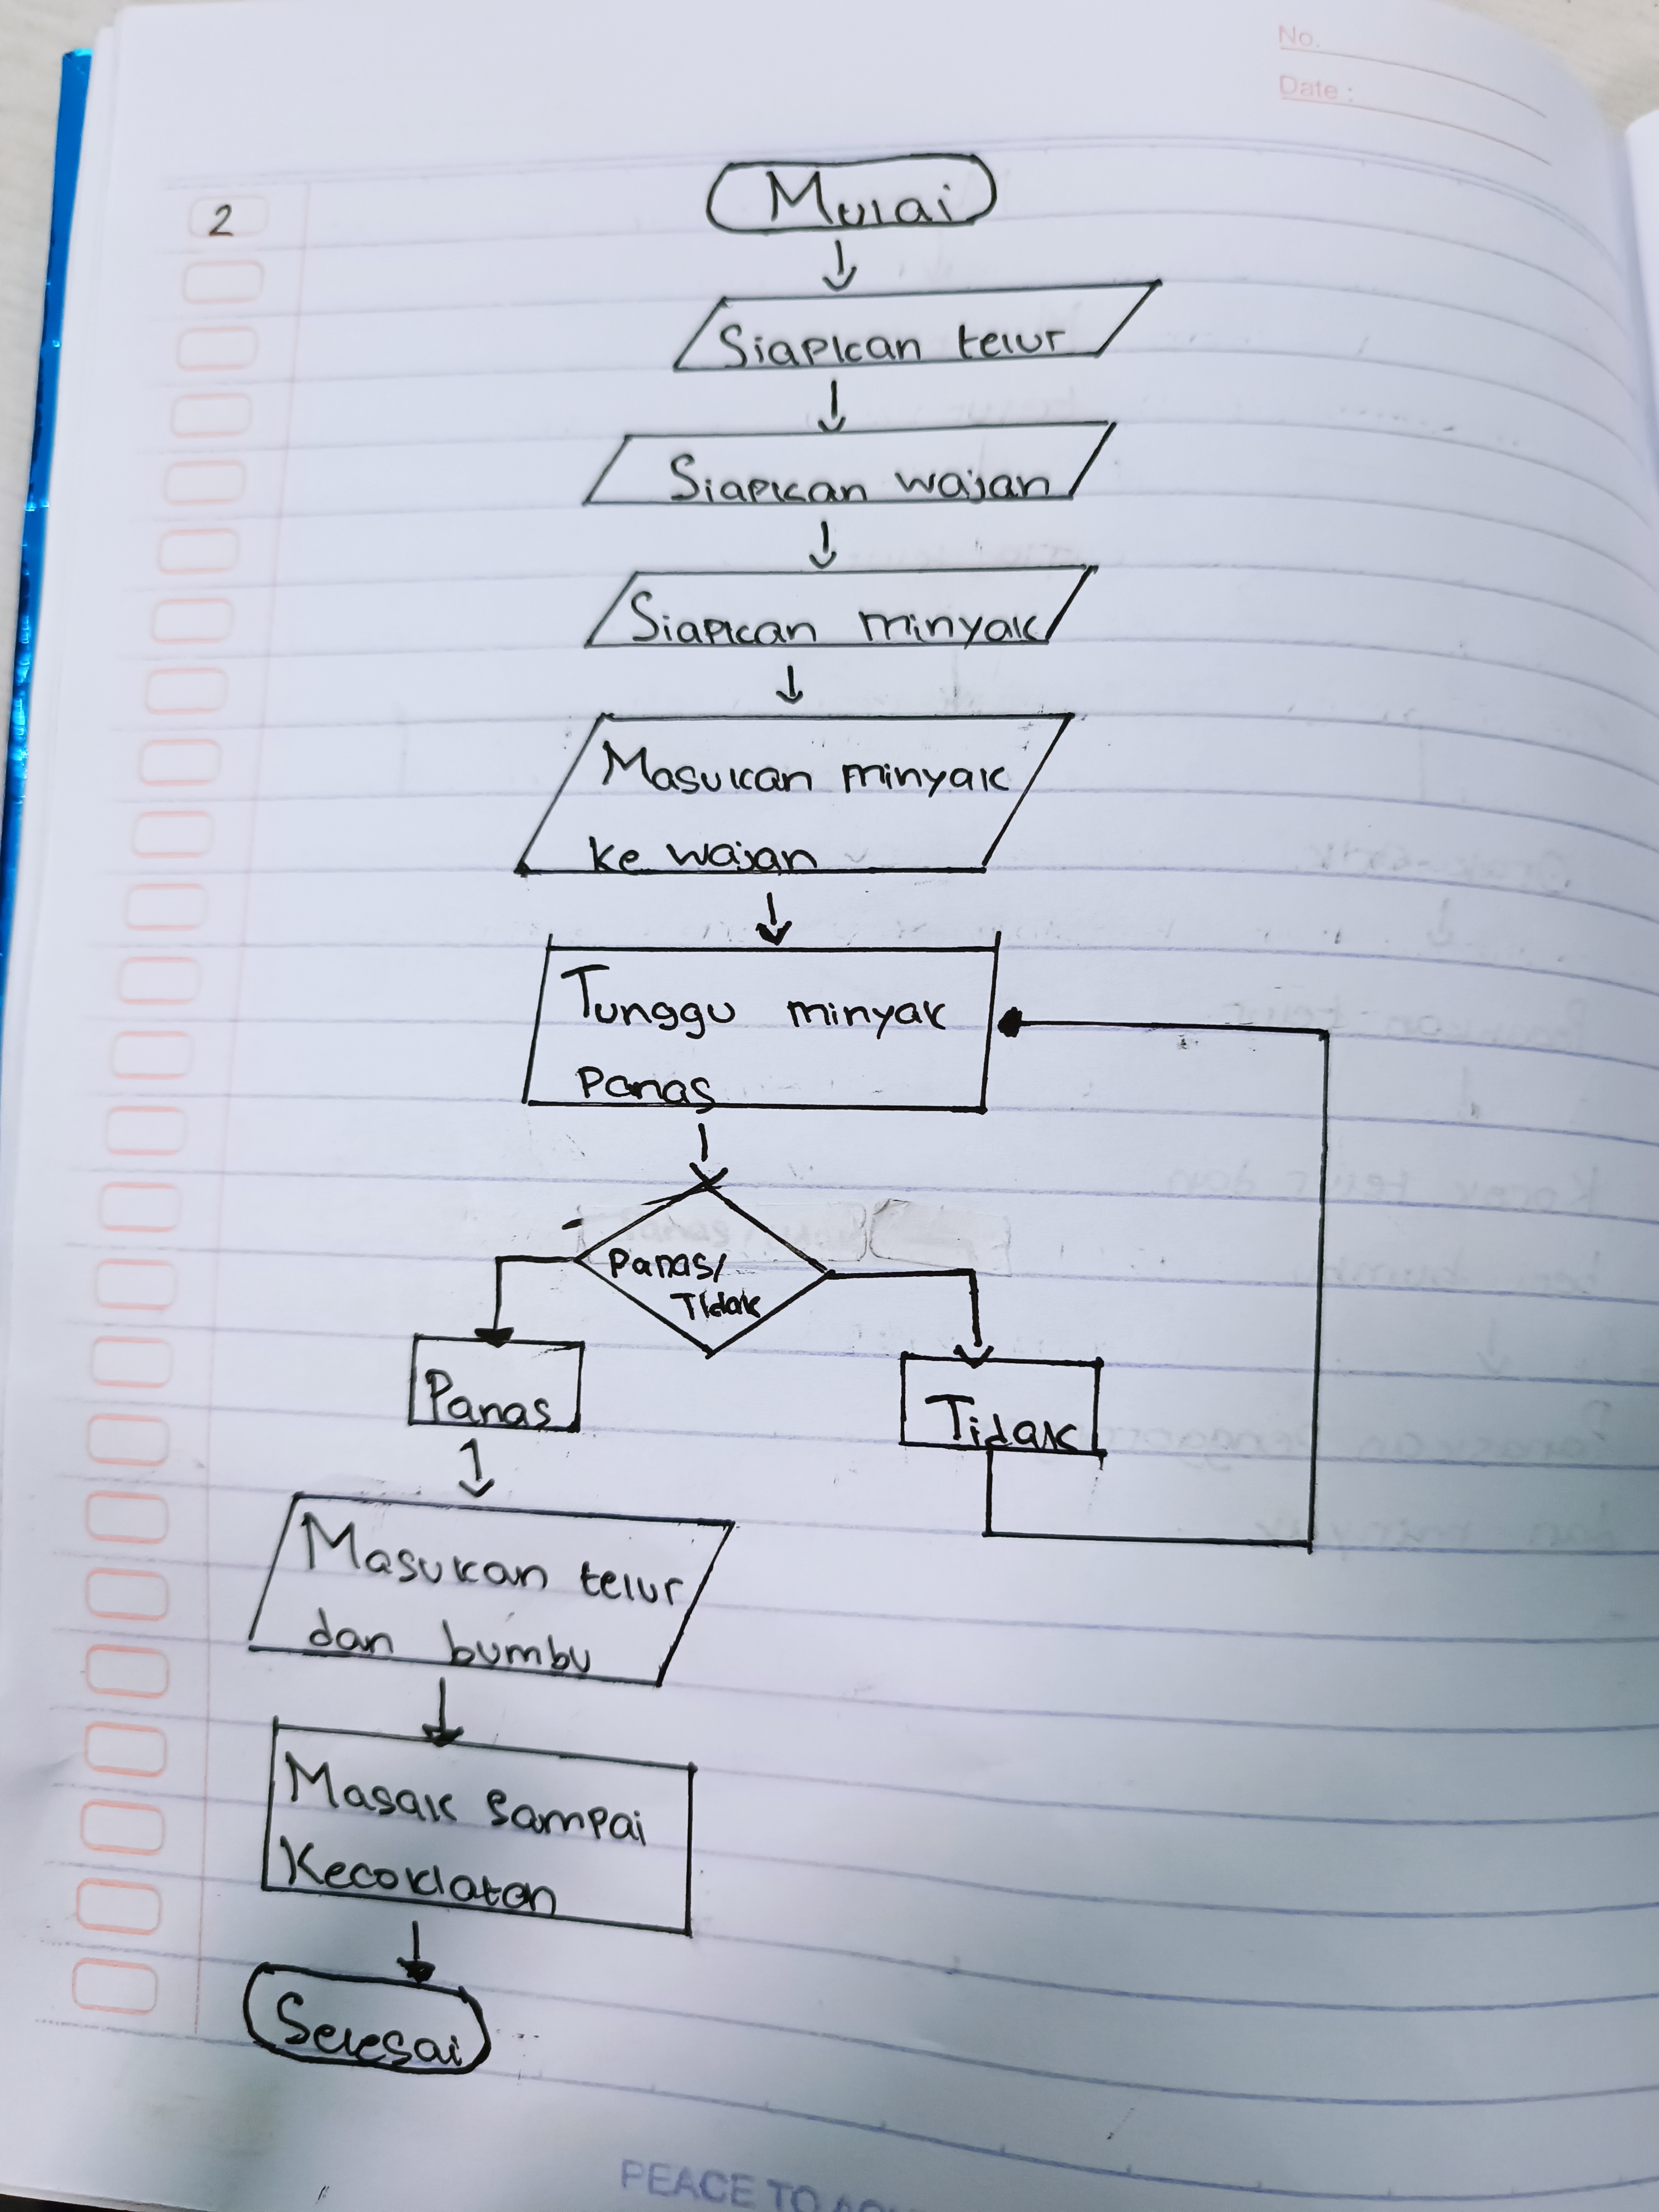 No.
Date :
2
Mulai
Siapkan telur
Siapkan wajan
Siapkan minyak
Masukan minyak
ke wajan
Tunggu minyak
Panas
Panas/
Tidak
Panas
Tidak
Masukan telur
dan bumbu
Masak sampai
Kecoklatan
Selesai
PEACE TO